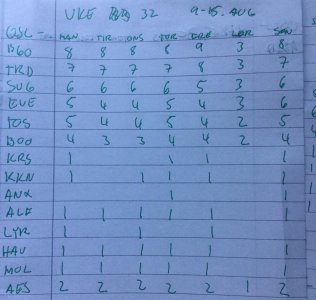 UKE 32 9-15. AUG
OSL - MAN TIR ONS TOR FRE LØR SØN
BGO 8 8 8 8 9 3 8
TRD 7 7 7 7 8 3 7
SVG 6 6 6 6 5 3 6
EVE 5 4 4 5 4 3 6
TOS 5 4 4 5 4 2 5
BOO 4 3 3 4 4 2 4
KRS 1 1 1 1
KKN 1 1 1 1 1
ANX 1 1
ALF 1 1 1 1 1 1
LYR 1 1 1
HAU 1 1 1 1 1 1
MOL 1 1 1 1 1 1
AES 2 2 2 2 2 1 2